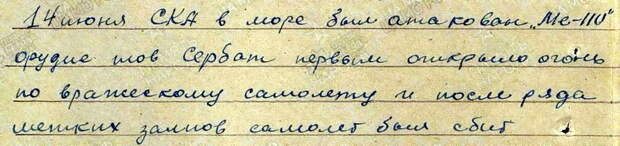 14 июня СКА в море был атакован „Ме-110"
орудие тов Сербат первым открыло огонь
по вражескому самолету и после ряда
метких залпов самолет был сбит